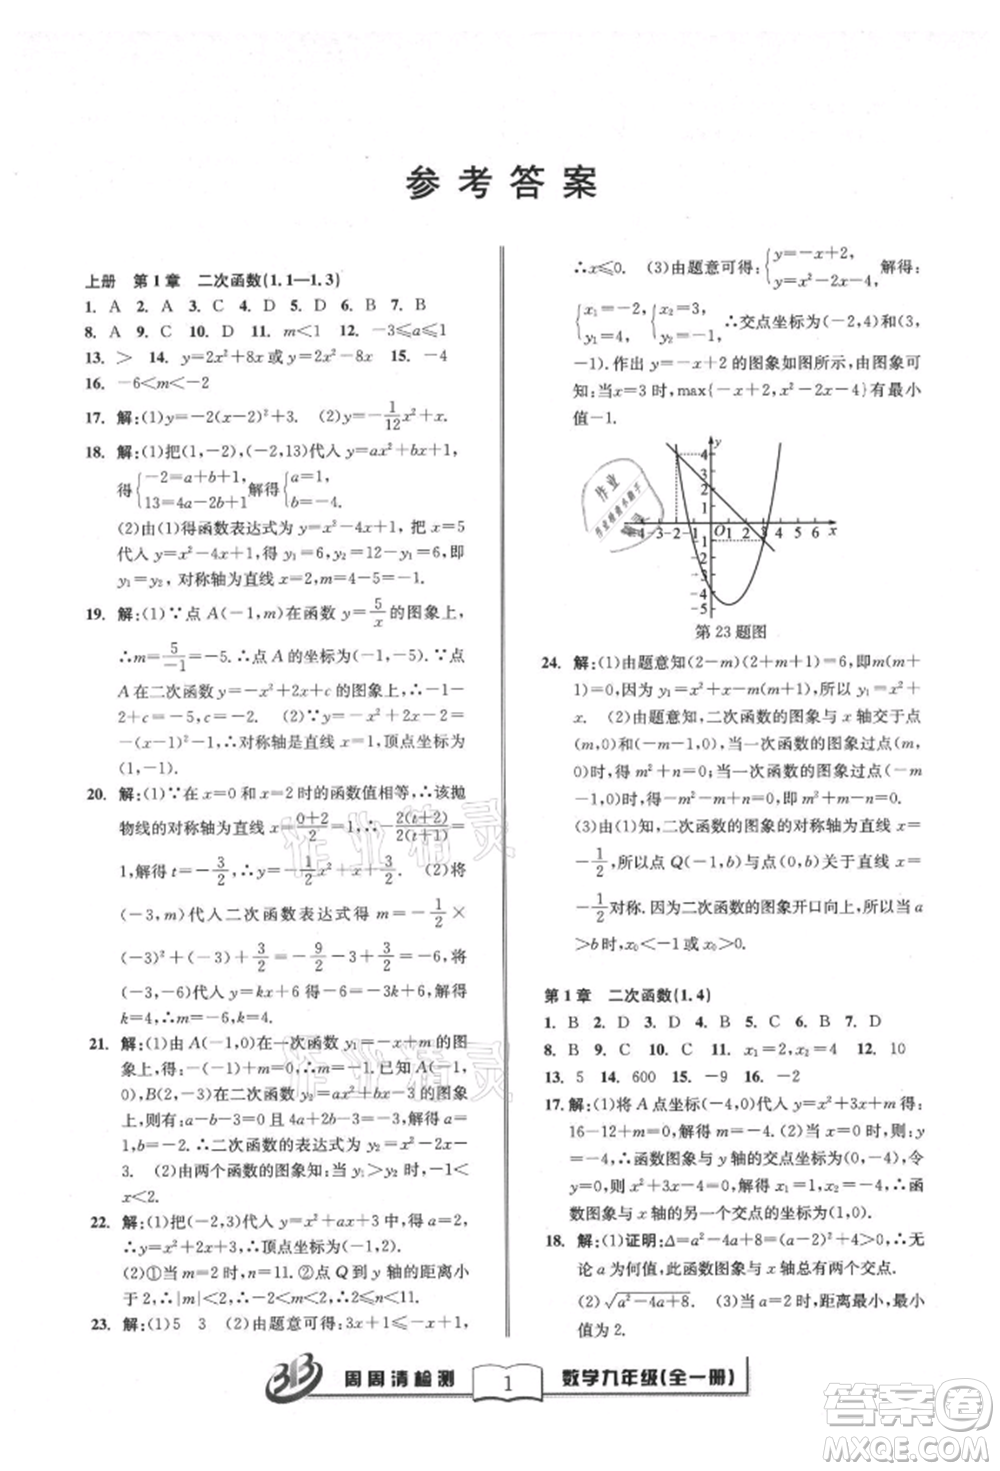 参考答案
上册　第1章　二次函数(1.1—1.3)
1. A　2. A　3. C　4. D　5. D　6. B　7. B
8. A　9. C　10. D　11. m<1　12. −3≤a≤1
13. >　14. y=2x²+8x或y=−2x²−8x　15. −4
16. −6<m<−2
17. 解:(1)y=−2(x−2)²+3.　(2)y=−1/12x²+x.
18. 解:(1)把(1,−2),(−2,13)代入y=ax²+bx+1,
得{−2=a+b+1, 13=4a−2b+1 解得{a=1, b=−4.
(2)由(1)得函数表达式为y=x²−4x+1,把x=5
代入y=x²−4x+1得,y₁=6,∴y₂=12−y₁=6,即
y₁=y₂,对称轴为直线x=2,∴m=4−5=−1.
19. 解:(1)∵点A(−1,m)在函数y=5/x的图象上,
∴m=5/−1=−5.∴点A的坐标为(−1,−5).∵点
A在二次函数y=−x²+2x+c的图象上,∴−1−
2+c=−5,∴c=−2.　(2)∵y=−x²+2x−2=
−(x−1)²−1,∴对称轴是直线x=1,顶点坐标为
(1,−1).
20. 解:(1)∵在x=0和x=2时的函数值相等,∴该抛
物线的对称轴为直线x=0+2/2=1,∴−2(t+2)/2(t+1)=
1,解得t=−3/2,∴y=−1/2x²+x+3/2.　(2)将
(−3,m)代入二次函数表达式得m=−1/2×
(−3)²+(−3)+3/2=−9/2−3+3/2=−6,∴点A为
(−3,−6),将(−3,−6)代入y=kx+6中,解得
k=4,∴m=−6,k=4.
21. 解:(1)由A(−1,0)在一次函数y₁=−x+m的图
象上,得−(−1)+m=0,∴m=−1.已知A(−1,
0),B(2,−3)在二次函数y₂=ax²+bx−3的图象
上,得a−b−3=0且4a+2b−3=−3,解得a=1,
b=−2.∴二次函数的表达式为y₂=x²−2x−
3.　(2)由两个函数的图象知:当y₁>y₂时,−1<
x<2.
22. 解:(1)把(−2,3)代入y=x²+ax+3得a=2,
∴y=x²+2x+3,∴顶点坐标为(−1,2).
(2)①当m=2时,n=11.②点Q到y轴的距离小
于2,∴|m|<2,∴−2<m<2,∴2≤n<11.
23. 解:(1)5　3　(2)由题意可得:3x+1≤−x+1,
∴x≤0.　(3)由题意可得:{y=−x+2, y=x²−2x−4, 解得:
{x₁=−2, y₁=4, {x₂=3, y₂=−1, ∴交点坐标为(−2,4)和(3,
−1).作出y=−x+2的图象如图所示,由图象可
知:当x=3时,max{−x+2,x²−2x−4}有最小
值−1.
第23题图
24. 解:(1)由题意知(2−m)(2+m+1)=6,即m(m+
1)=0,因为y₁=x²+x,当m=0时,y₁=x²+
x.　(2)由题意知,二次函数的图象与x轴交于点
(m,0)和(−m−1,0),当一次函数的图象过点(m,
0)时,得m²+n=0;当一次函数的图象过点
(−m−1,0)时,−m²−m+n=0.
(3)由题意知二次函数的图象的对称轴为直线x=
−1/2,所以点Q(−1,b)与点(0,b)关于直线x=
−1/2对称.因为二次函数的图象开口向上,所以当a
>b时,x₀<−1或x₀>0.
第1章　二次函数(1.4)
1. B　2. D　3. D　4. B　5. C　6. B　7. D
8. B　9. C　10. C　11. x₁=2,x₂=4　12. 10
13. 5　14. 600　15. −9　16. −2
17. 解:(1)将A点坐标(−4,0)代入y=x²+3x+m得:
16−12+m=0,解得m=−4.　(2)当x=0时,y
=−4,∴函数图象与y轴的交点坐标为(0,−4),令
y=0,则x²+3x−4=0,解得x₁=1,x₂=−4,∴函
数图象与x轴的另一个交点坐标为(1,0).
18. 解:(1)证明:Δ=a²−4a+8=(a−2)²+4>0;∴无
论a为何值,此函数图象与x轴总有两个交点.
(2)√a²−4a+8.　(3)当a=2时,距离最小,最小
值为2.
周周清检测
1
数学九年级(全一册)
作业精灵
作业精灵
答案圈
MXQE.COM